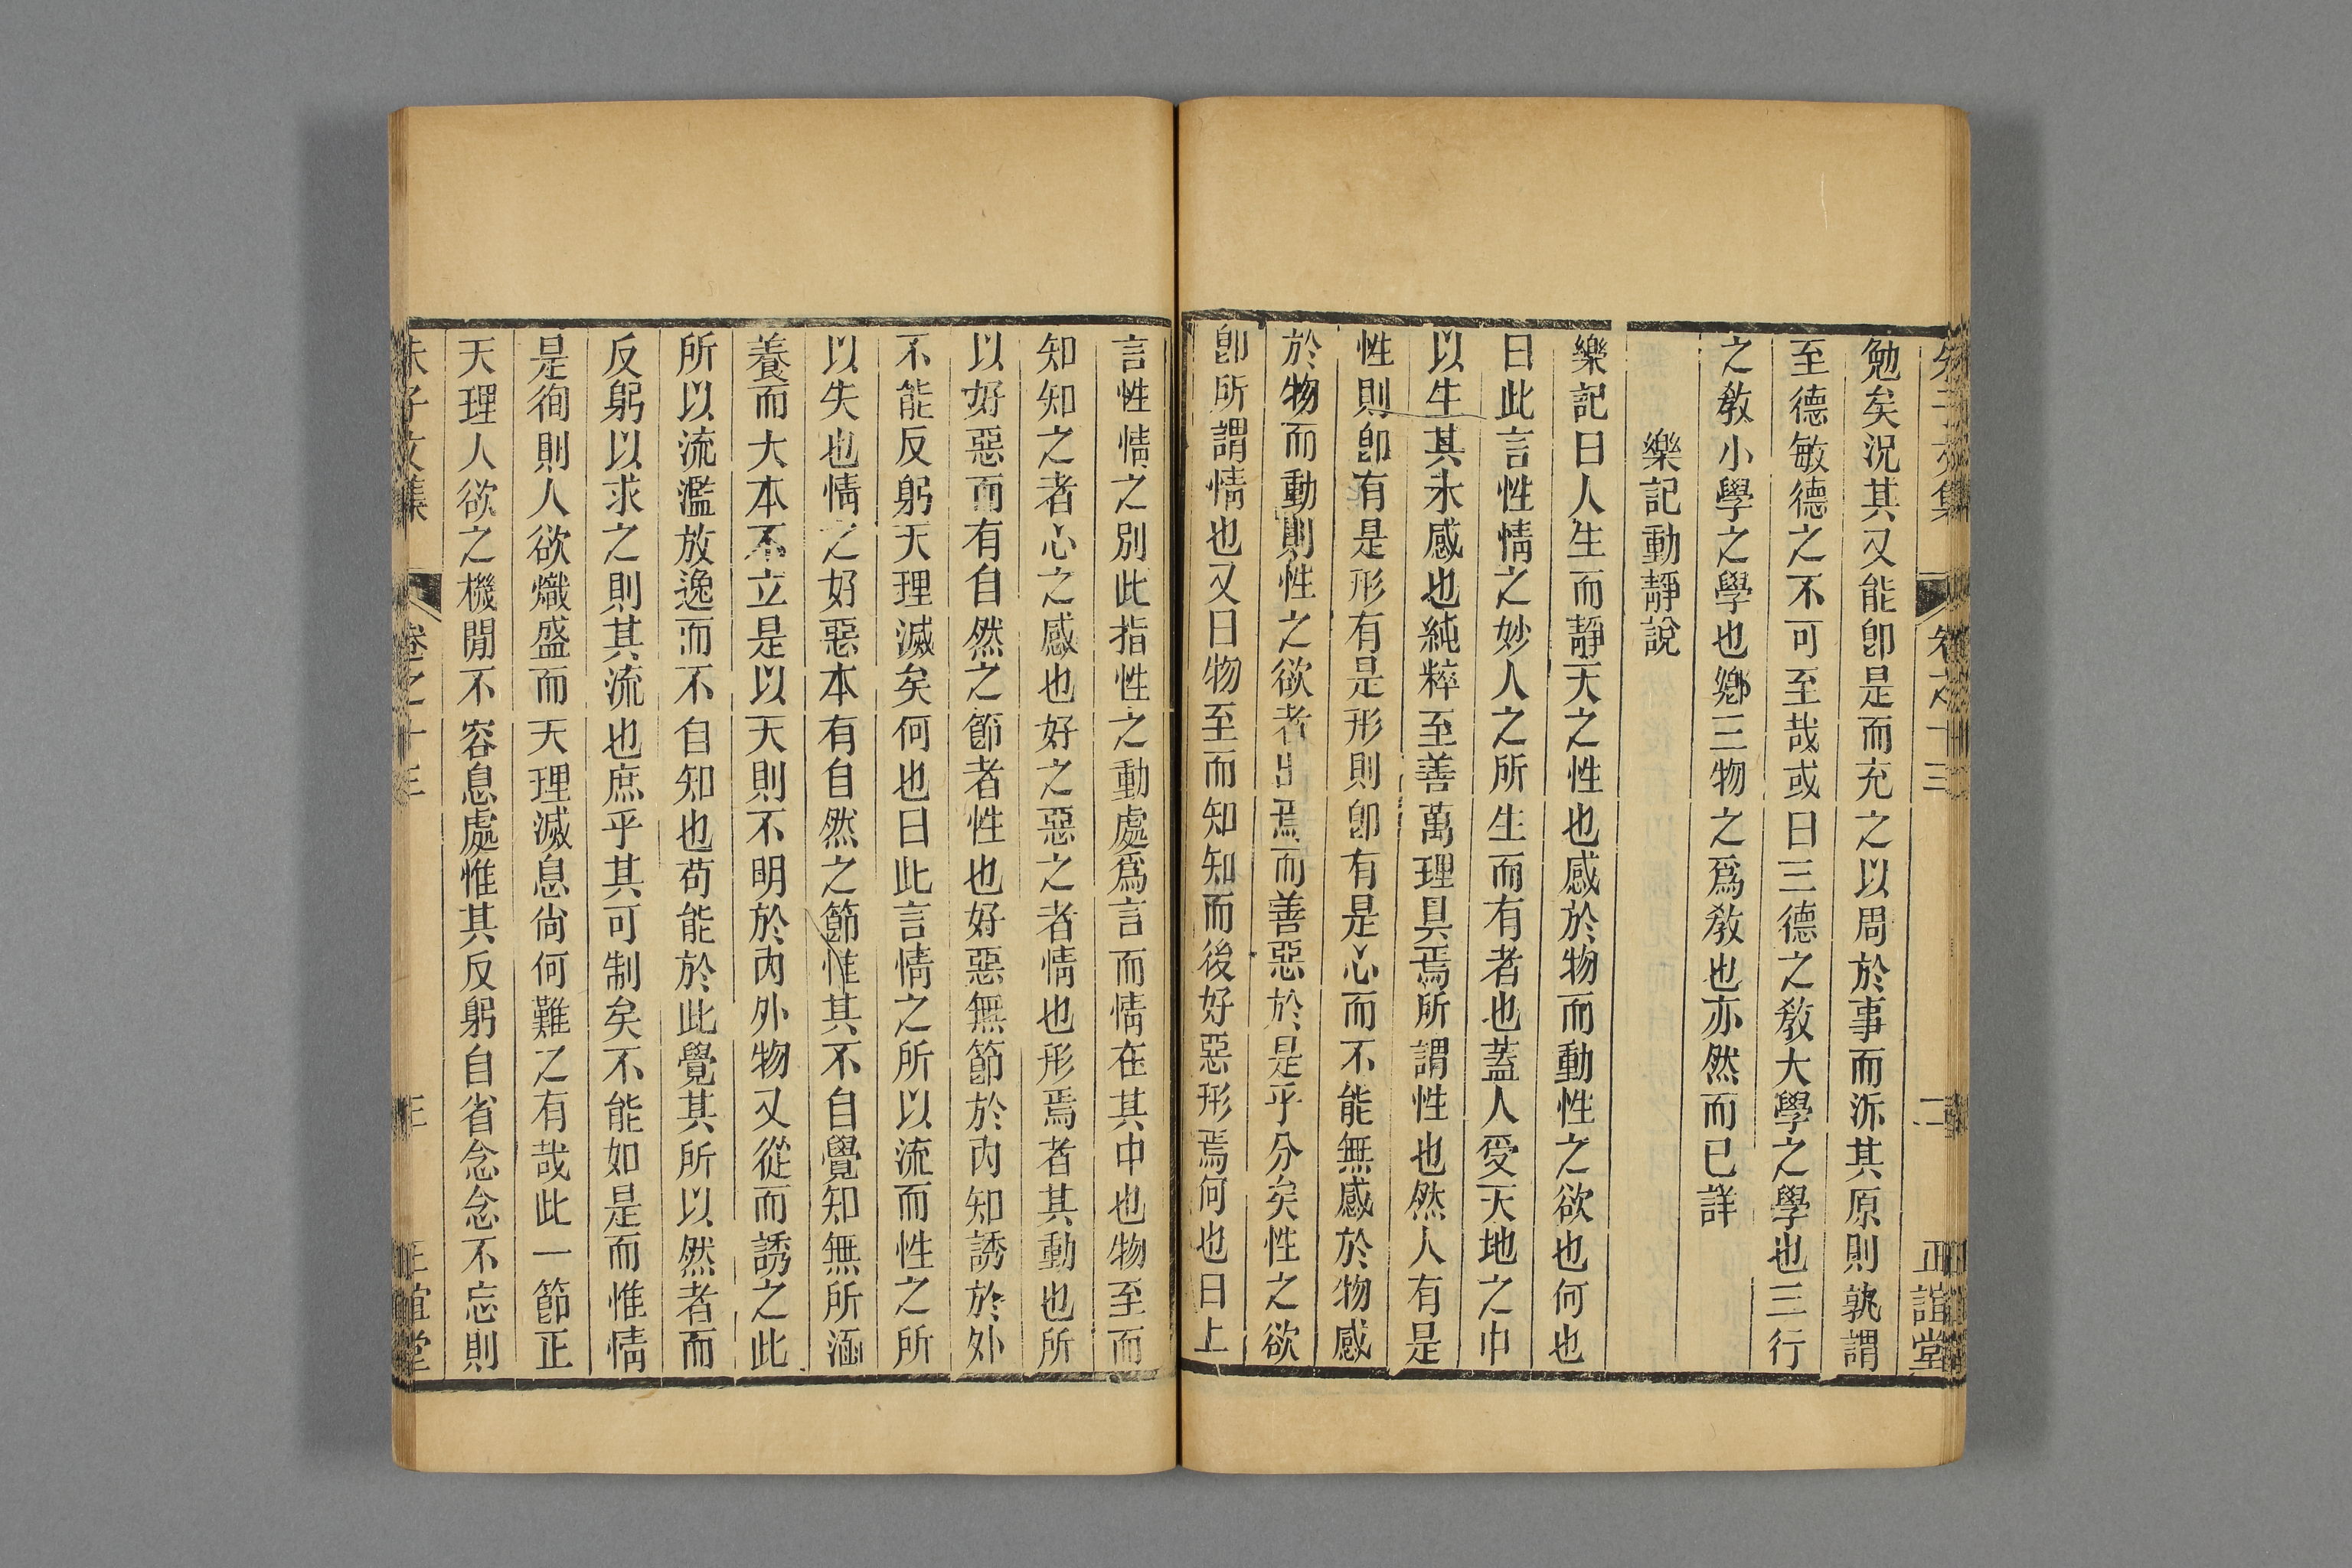 朱子文集 卷之十三 二 正誼堂
勉矣況其又能卽是而充之以周於事而泝其原則孰謂
至德敏德之不可至哉或曰三德之教大學之學也三行
之教小學之學也鄉三物之爲教也亦然而已詳
樂記動靜說
樂記曰人生而靜天之性也感於物而動性之欲也何也
曰此言性情之妙人之所生而有者也蓋人受天地之中
以生其未感也純粹至善萬理具焉所謂性也然人有是
性則卽有是形有是形則卽有是心而不能無感於物感
於物而動則性之欲者出焉而善惡於是乎分矣性之欲
卽所謂情也又曰物至而知知而後好惡形焉何也曰上
言性情之別此指性之動處爲言而情在其中也物至而
知知之者心之感也好之惡之者情也形焉者其動也所
以好惡而有自然之節者性也好惡無節於內知誘於外
不能反躬天理滅矣何也曰此言情之所以流而性之所
以失也情之好惡本有自然之節惟其不自覺知無所涵
養而大本不立是以天則不明於內外物又從而誘之此
所以流濫放逸而不自知也苟能於此覺其所以然者而
反躬以求之則其流也庶乎其可制矣不能如是而惟情
是徇則人欲熾盛而天理滅息尚何難之有哉此一節正
天理人欲之機間不容息處惟其反躬自省念念不忘則
朱子文集 卷之十三 三 正誼堂